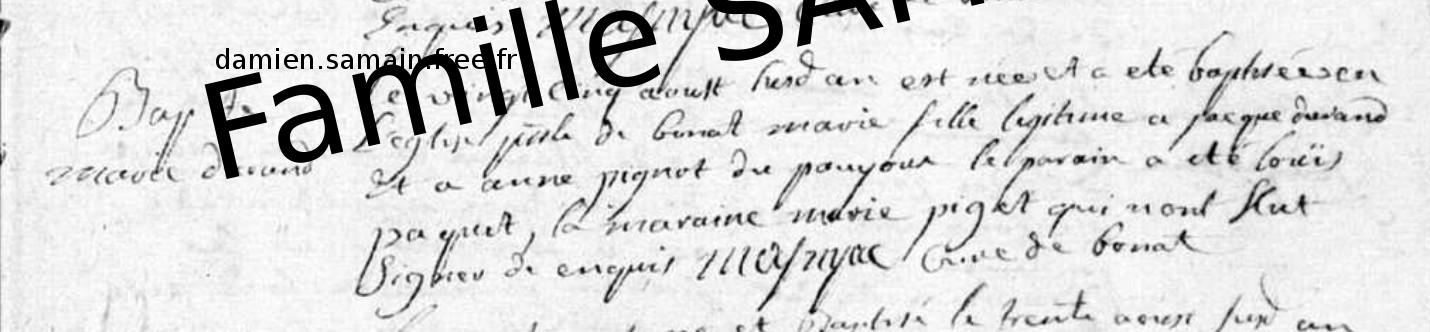 enquis
Famille SAM
damien.samain.free.fr
Bapt
marie durand
Le vingt cinq aoust susd an est née et a eté baptisée en
l'eglise pssle de bonat marie fille legitime a jacque durand
et a anne pignot du pouyoux le parain a eté loüis
paquet, la maraine marie piget qui nont sceut
signer de enquis curé de bonat
et Baptisé le trente aoust susd an